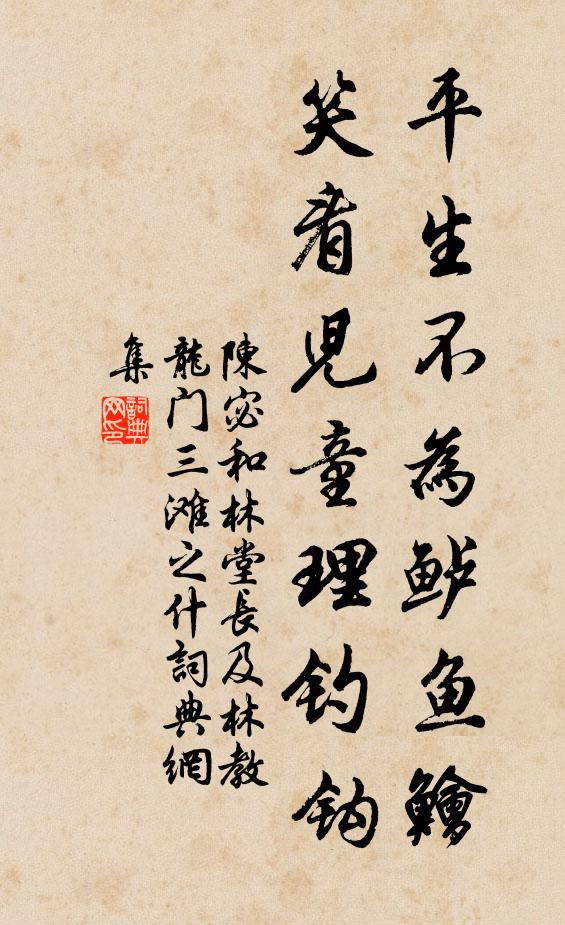 平生不為鲈鱼鱠
笑看児童理钓钩
陳宓和林堂長及林教
龍门三滩之什詞典網
集
詞典网印